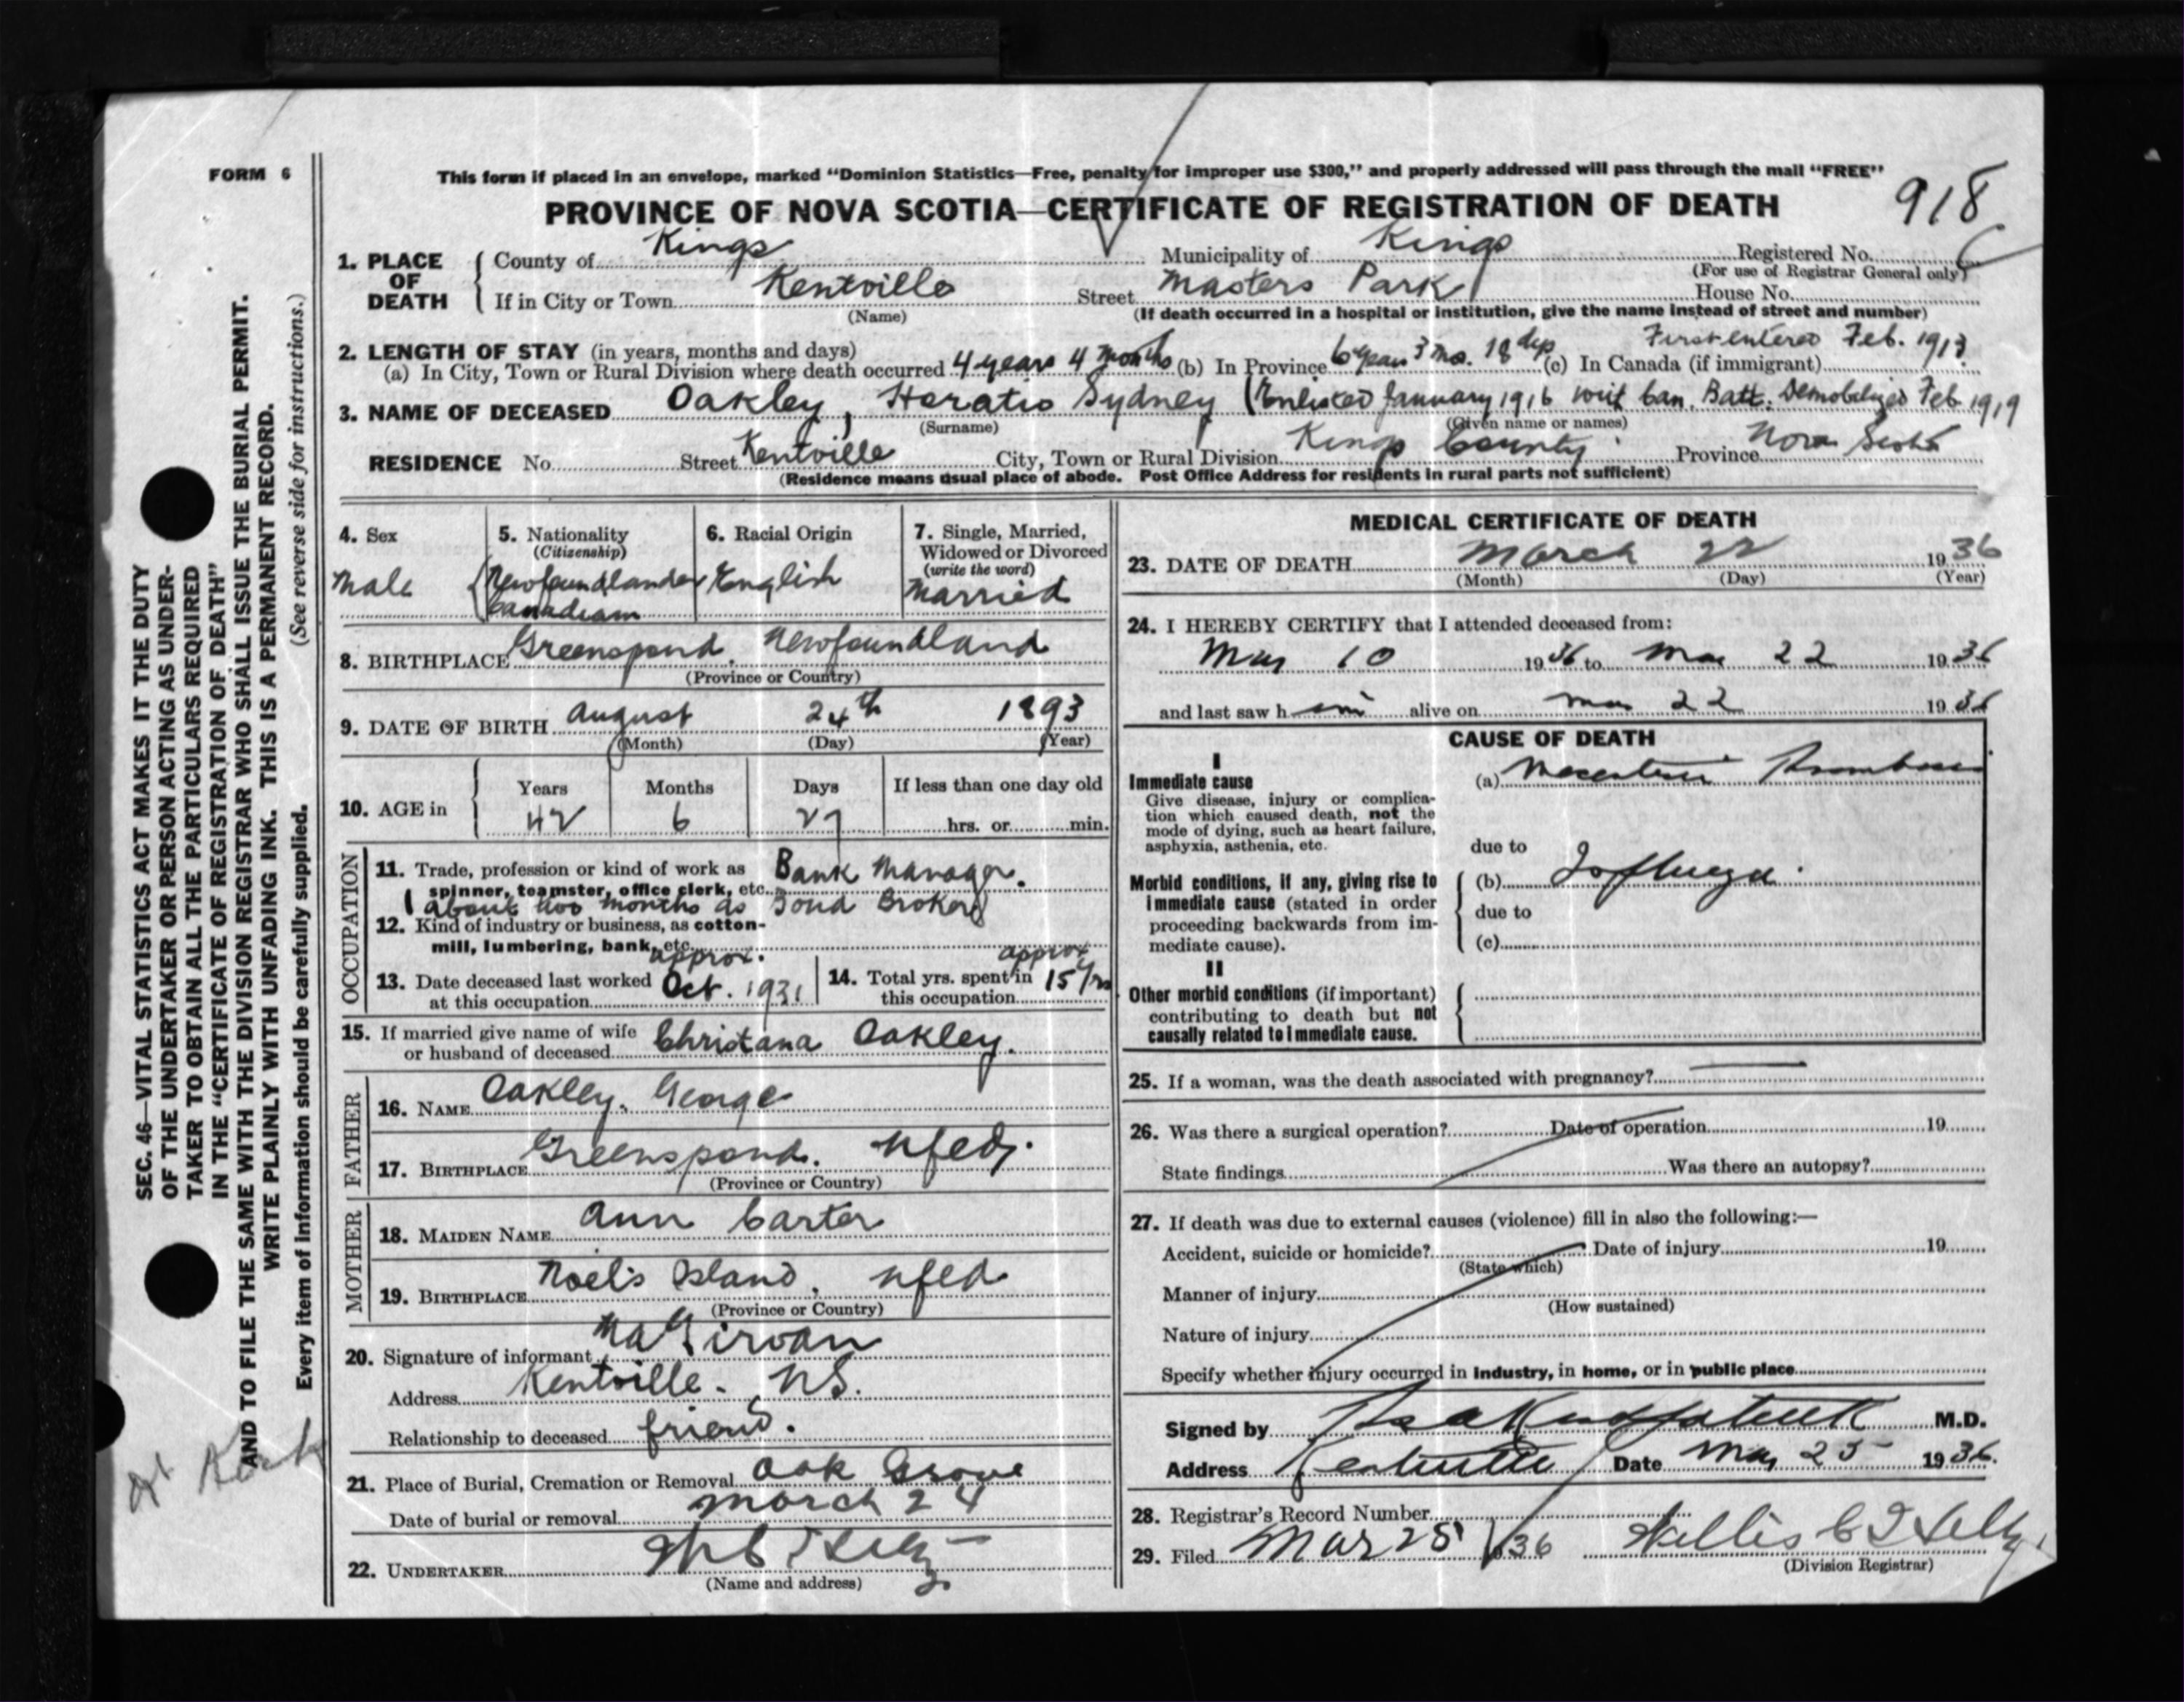 FORM 6
This form if placed in an envelope, marked "Dominion Statistics—Free, penalty for improper use $300," and properly addressed will pass through the mail "FREE"
918
PROVINCE OF NOVA SCOTIA—CERTIFICATE OF REGISTRATION OF DEATH
1. PLACE OF DEATH { County of Kings Municipality of Kings Registered No.
(For use of Registrar General only)
If in City or Town Kentville Street Masters Park House No.
(Name) (If death occurred in a hospital or institution, give the name instead of street and number)
2. LENGTH OF STAY (in years, months and days) First entered Feb. 1913
(a) In City, Town or Rural Division where death occurred 4 years 4 months (b) In Province 6 years 3 mo. 18 days (c) In Canada (if immigrant)
3. NAME OF DECEASED Oakley, Horatio Sydney (Enlisted January 1916 with Can. Batt. Demobilized Feb 1919
(Surname) (Given name or names)
RESIDENCE No. Street Kentville City, Town or Rural Division Kings County Province Nova Scotia
(Residence means usual place of abode. Post Office Address for residents in rural parts not sufficient)
4. Sex
Male
5. Nationality
(Citizenship)
{Newfoundlander
Canadian
6. Racial Origin
English
7. Single, Married,
Widowed or Divorced
(write the word)
Married
8. BIRTHPLACE Greenspond, Newfoundland
(Province or Country)
9. DATE OF BIRTH August 24th 1893
(Month) (Day) (Year)
10. AGE in { Years Months Days If less than one day old
42 6 27 hrs. or min.
OCCUPATION
11. Trade, profession or kind of work as Bank Manager.
spinner, teamster, office clerk, etc.
about two months as Bond Broker
12. Kind of industry or business, as cotton-
mill, lumbering, bank, etc.
13. Date deceased last worked approx. Oct. 1931
at this occupation
14. Total yrs. spent in approx 15 yrs
this occupation
15. If married give name of wife Christana Oakley.
or husband of deceased
FATHER
16. NAME Oakley, George
17. BIRTHPLACE Greenspond. Nfld.
(Province or Country)
MOTHER
18. MAIDEN NAME Ann Carter
19. BIRTHPLACE Noel's Island, Nfld
(Province or Country)
20. Signature of informant Girvan
Address Kentville. N.S.
Relationship to deceased friend.
21. Place of Burial, Cremation or Removal Oak Grove
Date of burial or removal March 24
22. UNDERTAKER
(Name and address)
MEDICAL CERTIFICATE OF DEATH
23. DATE OF DEATH March 22 1936
(Month) (Day) (Year)
24. I HEREBY CERTIFY that I attended deceased from:
Mar 10 1936 to Mar 22 1936
and last saw h im alive on Mar 22 1936
CAUSE OF DEATH
I
Immediate cause
Give disease, injury or complica-
tion which caused death, not the
mode of dying, such as heart failure,
asphyxia, asthenia, etc.
(a) Mesenteric Thrombosis
due to
Morbid conditions, if any, giving rise to
immediate cause (stated in order
proceeding backwards from im-
mediate cause).
(b) Influenza.
due to
(c)
II
Other morbid conditions (if important)
contributing to death but not
causally related to immediate cause.
25. If a woman, was the death associated with pregnancy? —
26. Was there a surgical operation? Date of operation 19
State findings Was there an autopsy?
27. If death was due to external causes (violence) fill in also the following:—
Accident, suicide or homicide? Date of injury 19
(State which)
Manner of injury
(How sustained)
Nature of injury
Specify whether injury occurred in industry, in home, or in public place
Signed by M.D.
Address Kentville Date Mar 25 1936.
28. Registrar's Record Number
29. Filed Mar 25 1936
(Division Registrar)
SEC. 46—VITAL STATISTICS ACT MAKES IT THE DUTY
OF THE UNDERTAKER OR PERSON ACTING AS UNDER-
TAKER TO OBTAIN ALL THE PARTICULARS REQUIRED
IN THE "CERTIFICATE OF REGISTRATION OF DEATH"
AND TO FILE THE SAME WITH THE DIVISION REGISTRAR WHO SHALL ISSUE THE BURIAL PERMIT.
WRITE PLAINLY WITH UNFADING INK. THIS IS A PERMANENT RECORD.
Every item of information should be carefully supplied. (See reverse side for instructions.)